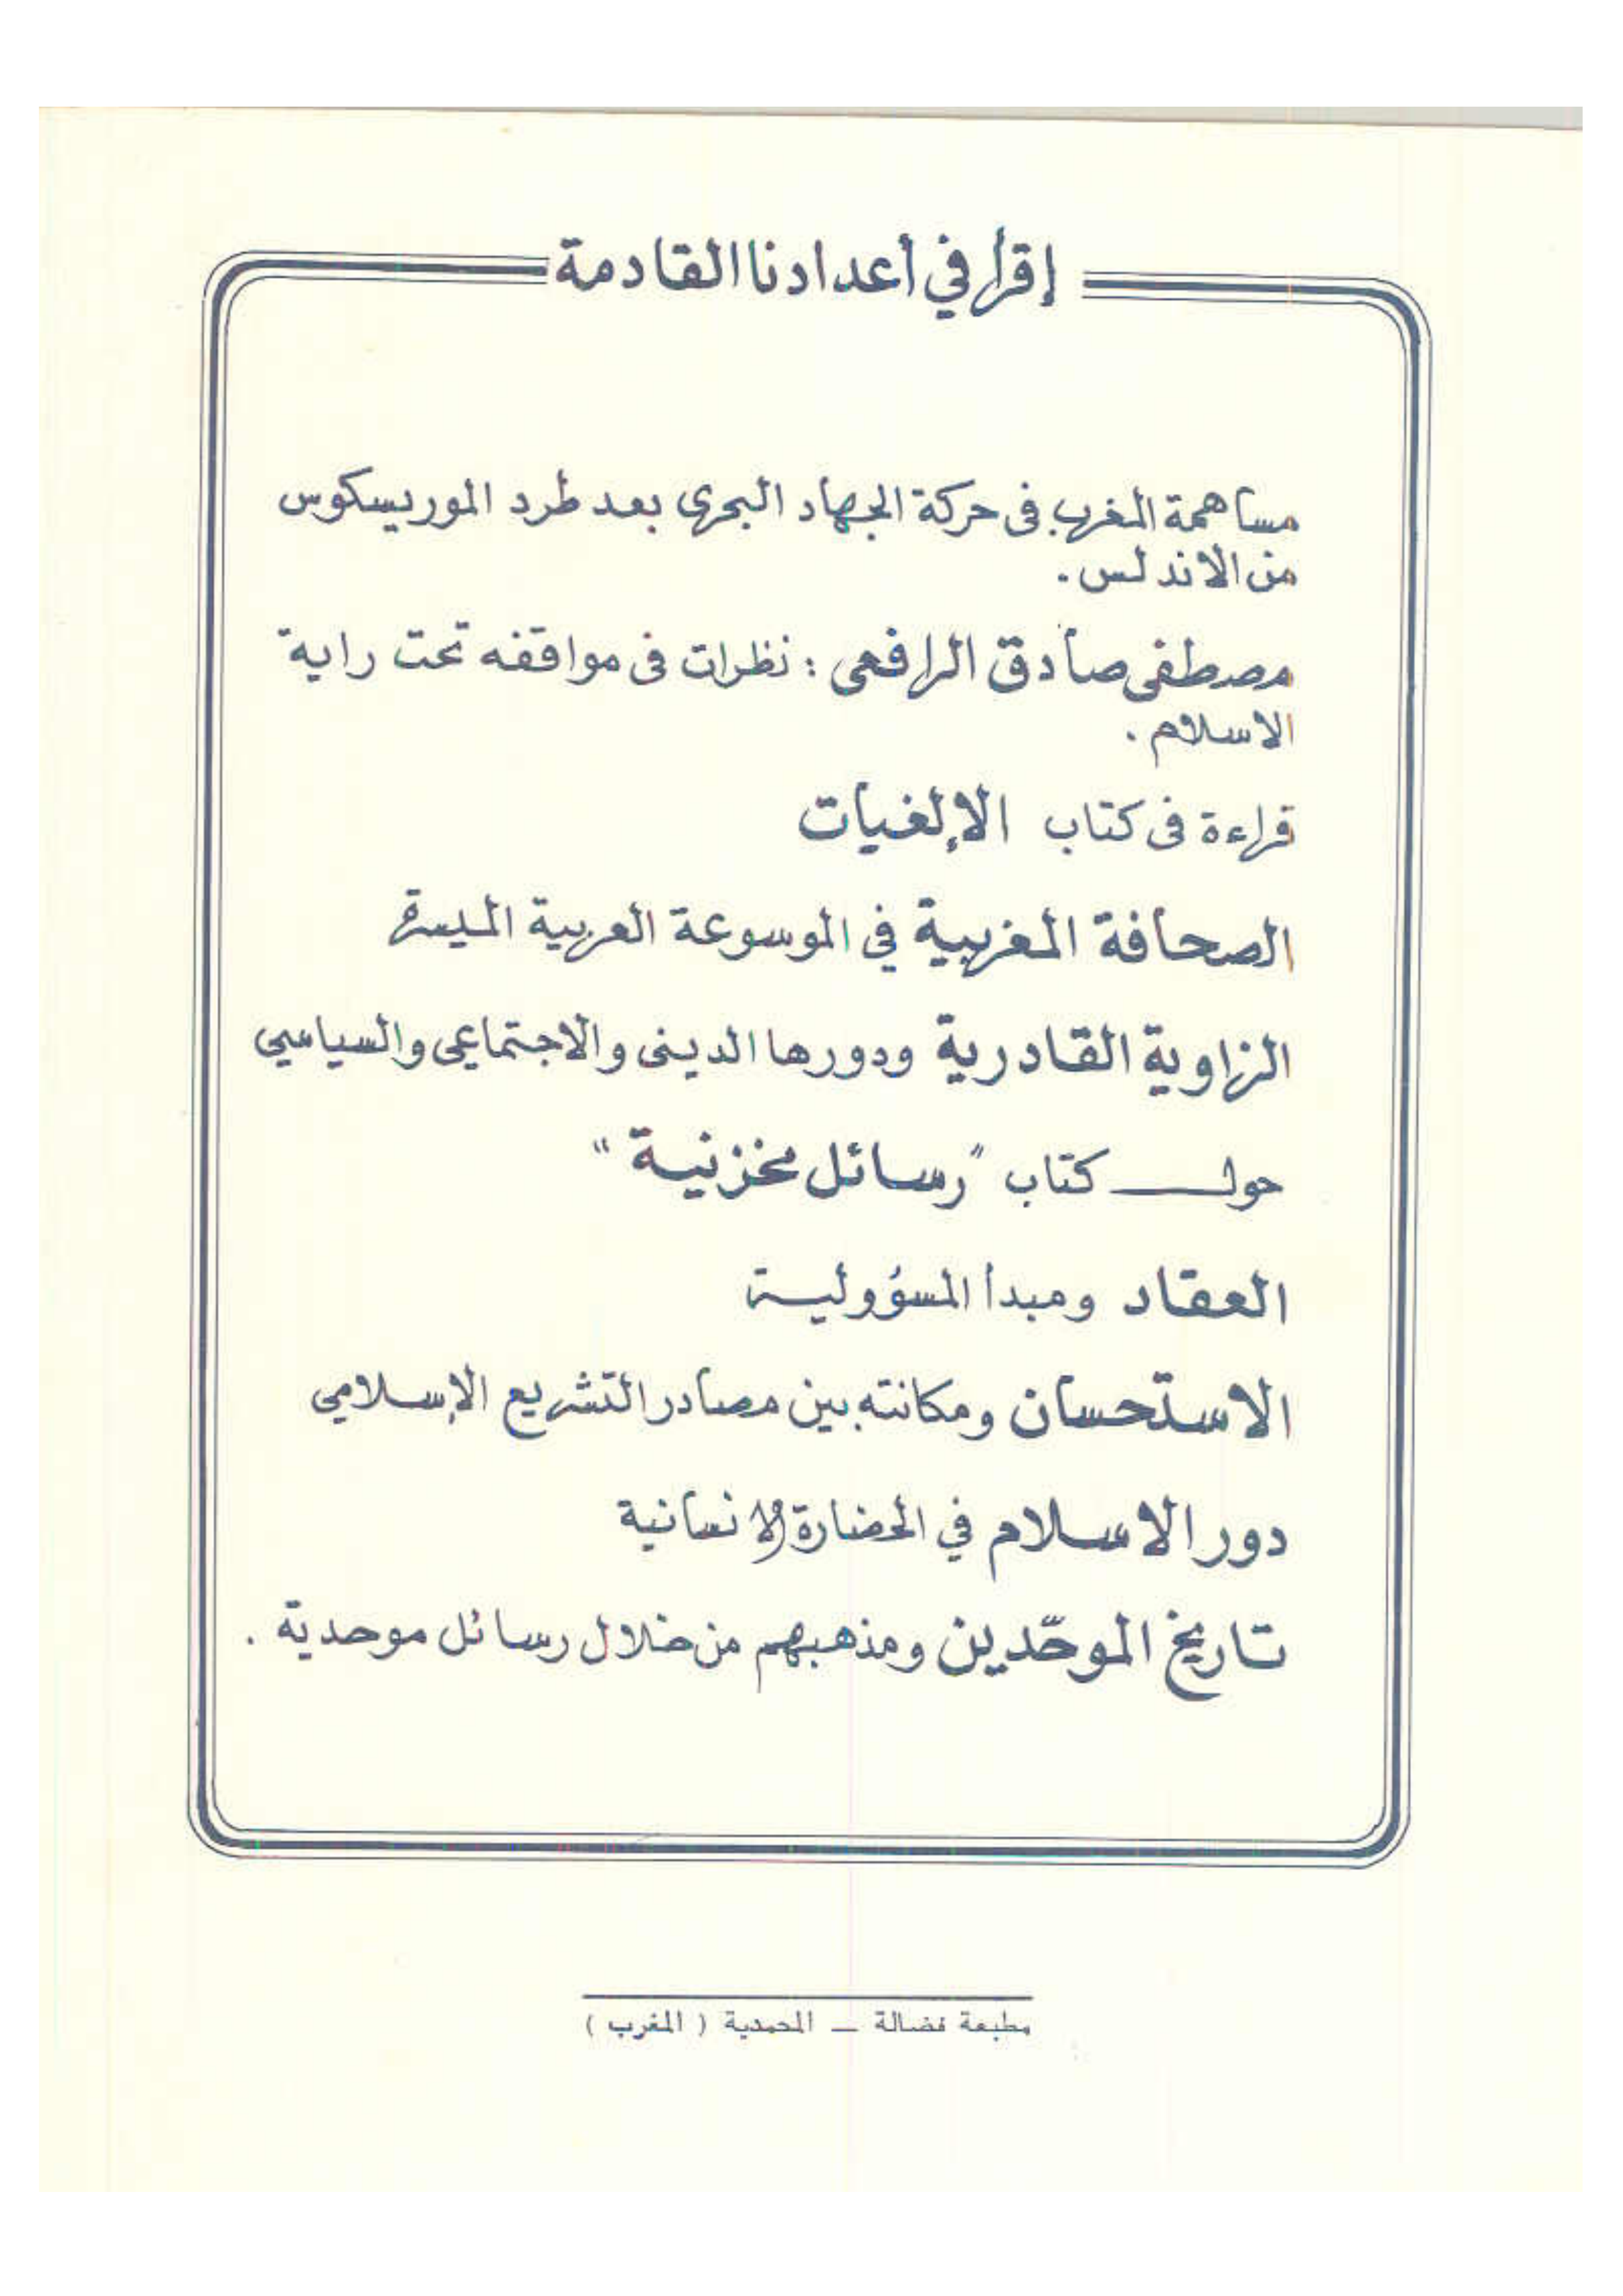 إقرأ في أعدادنا القادمة
مساهمة المغرب فى حركة الجهاد البحرى بعد طرد الموريسكوس
من الاندلس .
مصطفى صادق الرافعى : نظرات فى مواقفه تحت راية
الاسلام .
قراءة فى كتاب الإلغيات
الصحافة المغربية في الموسوعة العربية الميسرة
الزاوية القادرية ودورها الدينى والاجتماعى والسياسي
حول كتاب "رسائل مخزنية"
العقاد ومبدأ المسؤولية
الاستحسان ومكانته بين مصادر التشريع الإسلامي
دور الاسلام في الحضارة الإنسانية
تاريخ الموحّدين ومذهبهم من خلال رسائل موحدية .
مطبعة فضالة ــ المحمدية ( المغرب )